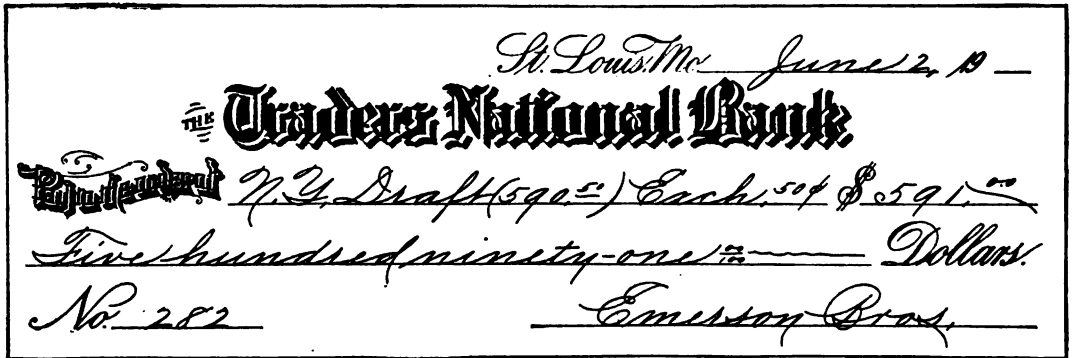 St. Louis, Mo. June 2, 19 —
THE Traders National Bank
Pay to the order of N.Y. Draft (590.50) Exch. .50¢ $591.00
Five hundred ninety-one 00/100 Dollars.
No. 282 Emerson Bros.